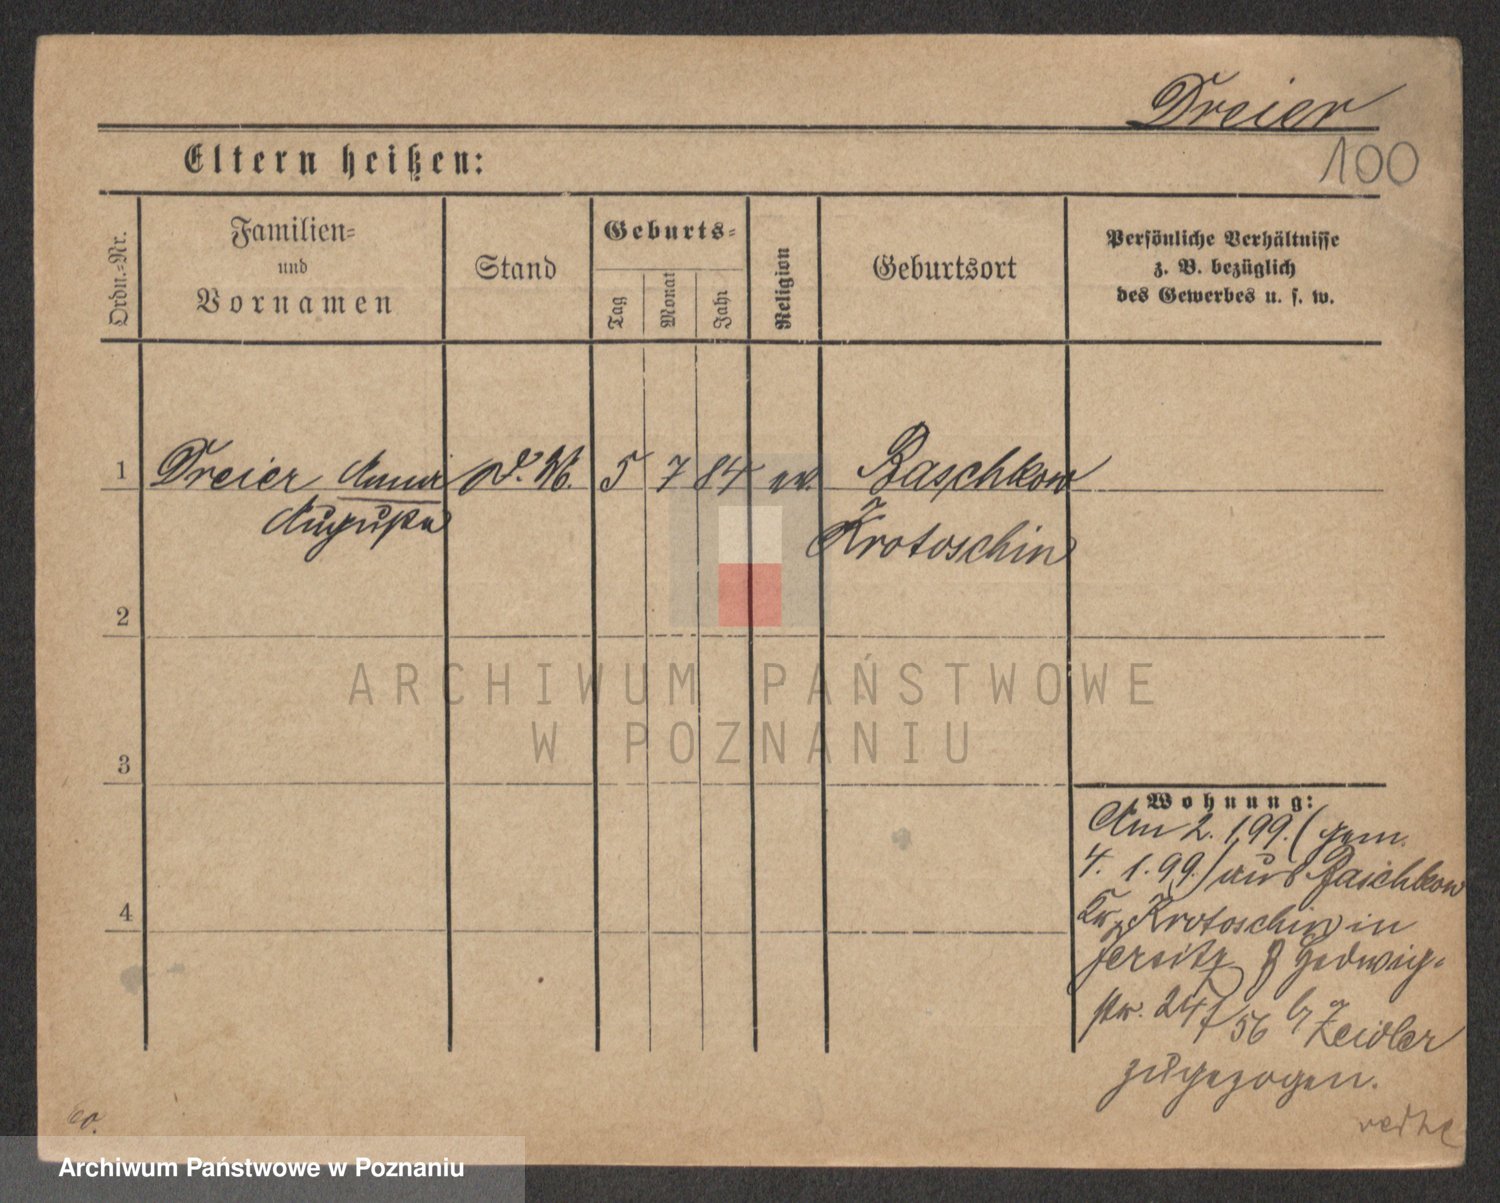 Dreier
100
Eltern heißen:
Ordn.=Nr.
Familien=
und
Vornamen
Stand
Geburts=
Tag
Monat
Jahr
Religion
Geburtsort
Persönliche Verhältnisse
z. B. bezüglich
des Gewerbes u. s. w.
1 Dreier Anna 5 7 84 ev. Baschkow
Auguste Krotoschin
2
ARCHIWUM PAŃSTWOWE
W POZNANIU
3
Wohnung:
Am 2. 1. 99. (gem.
4. 1. 99.) aus Baschkow
Kr. Krotoschin in
Jersitz Hedwig=
str. 24 / 56 b/ Zeidler
zugezogen.
Archiwum Państwowe w Poznaniu
4